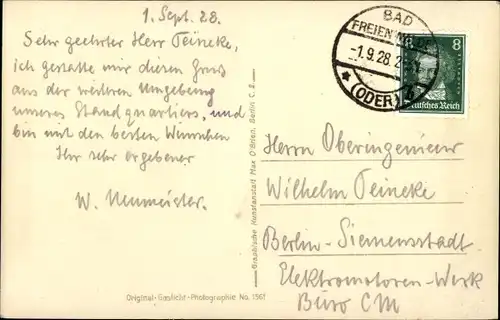 1. Sept. 28.
Sehr geehrter Herr Teineke,
ich gestatte mir diesen Gruß
aus der weiteren Umgebung
unseres Standquartiers, und
bin mit den besten Wünschen
Ihr sehr ergebener
W. Neumeister.
Original-Gaslicht-Photographie No. 1361
Graphische Kunstanstalt Max O'Brien, Berlin C. 2.
BAD
FREIENWALDE
-1.9.28.
(ODER)
8
Deutsches Reich
Herrn Oberingenieur
Wilhelm Teineke
Berlin-Siemensstadt
Elektromotoren-Werk
Büro CM